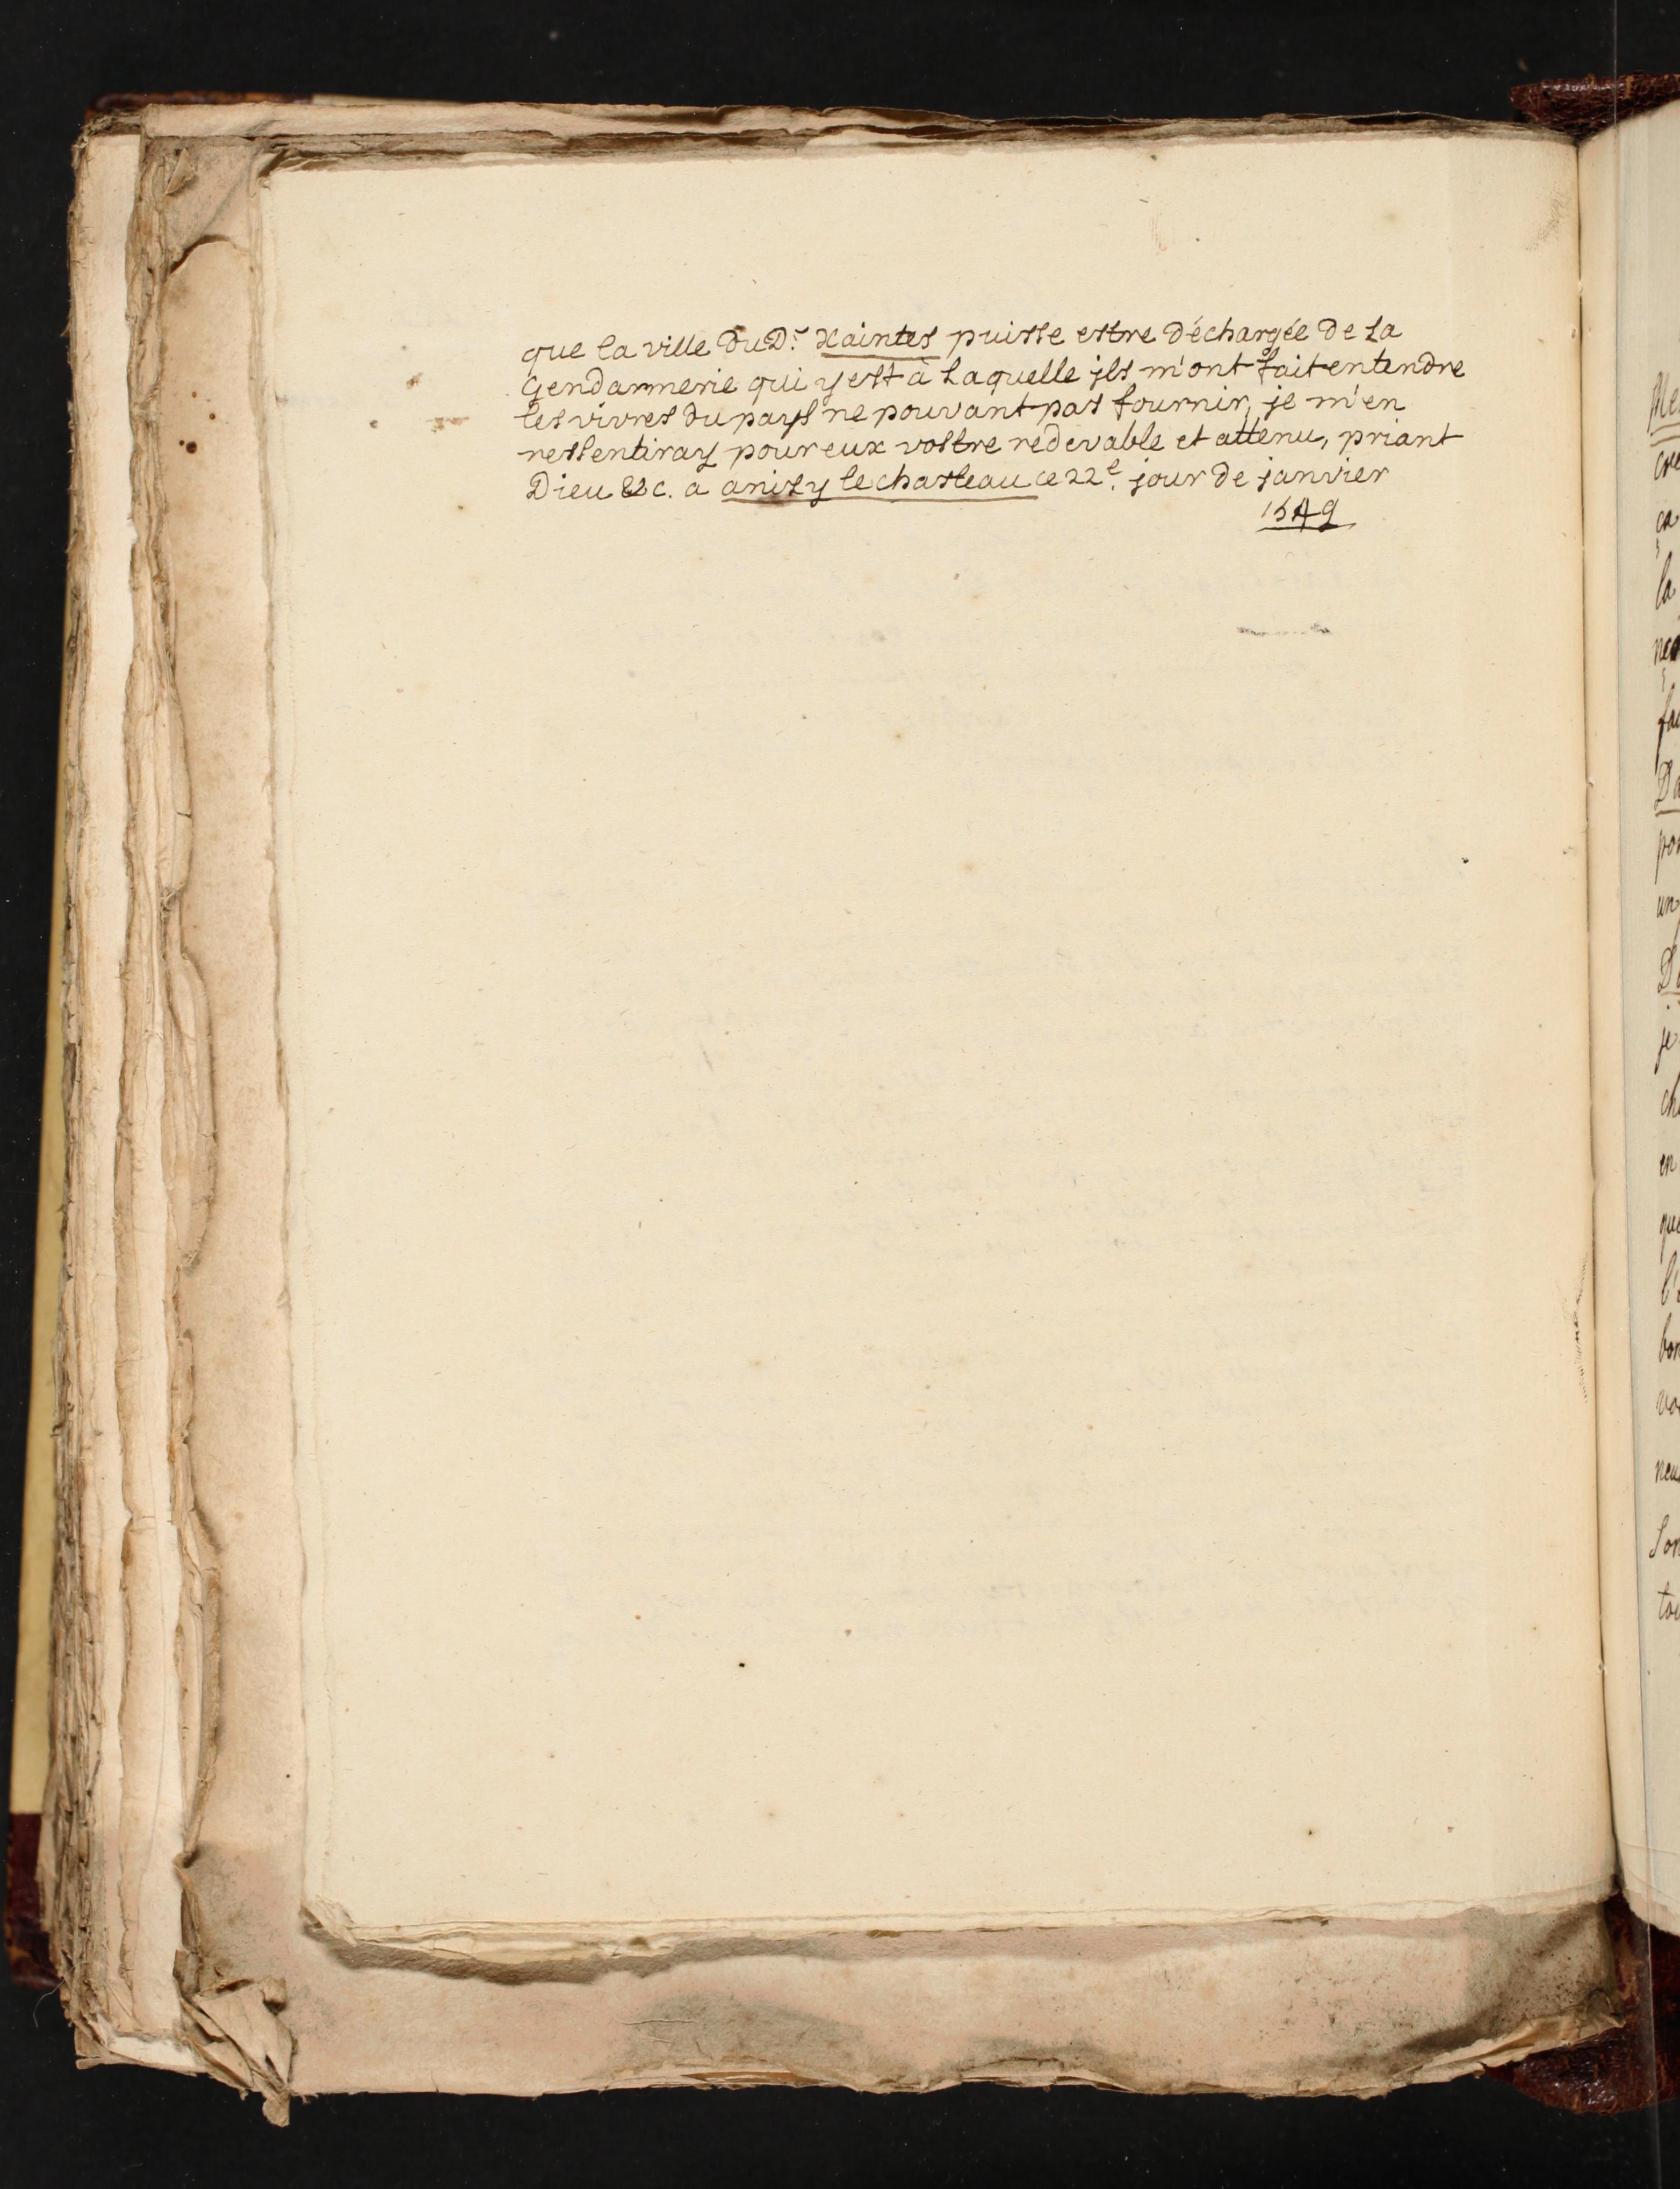 que la ville du D.^t Xaintes puisse estre déchargée de La
Gendarmerie qui y est à Laquelle jls m'ont fait entendre
les vivres du pays ne pouvant pas fournir, je m'en
ressentiray pour eux vostre redevable et attenu, priant
Dieu &c. a anisy le chasteau ce 22^e. jour de janvier
1549